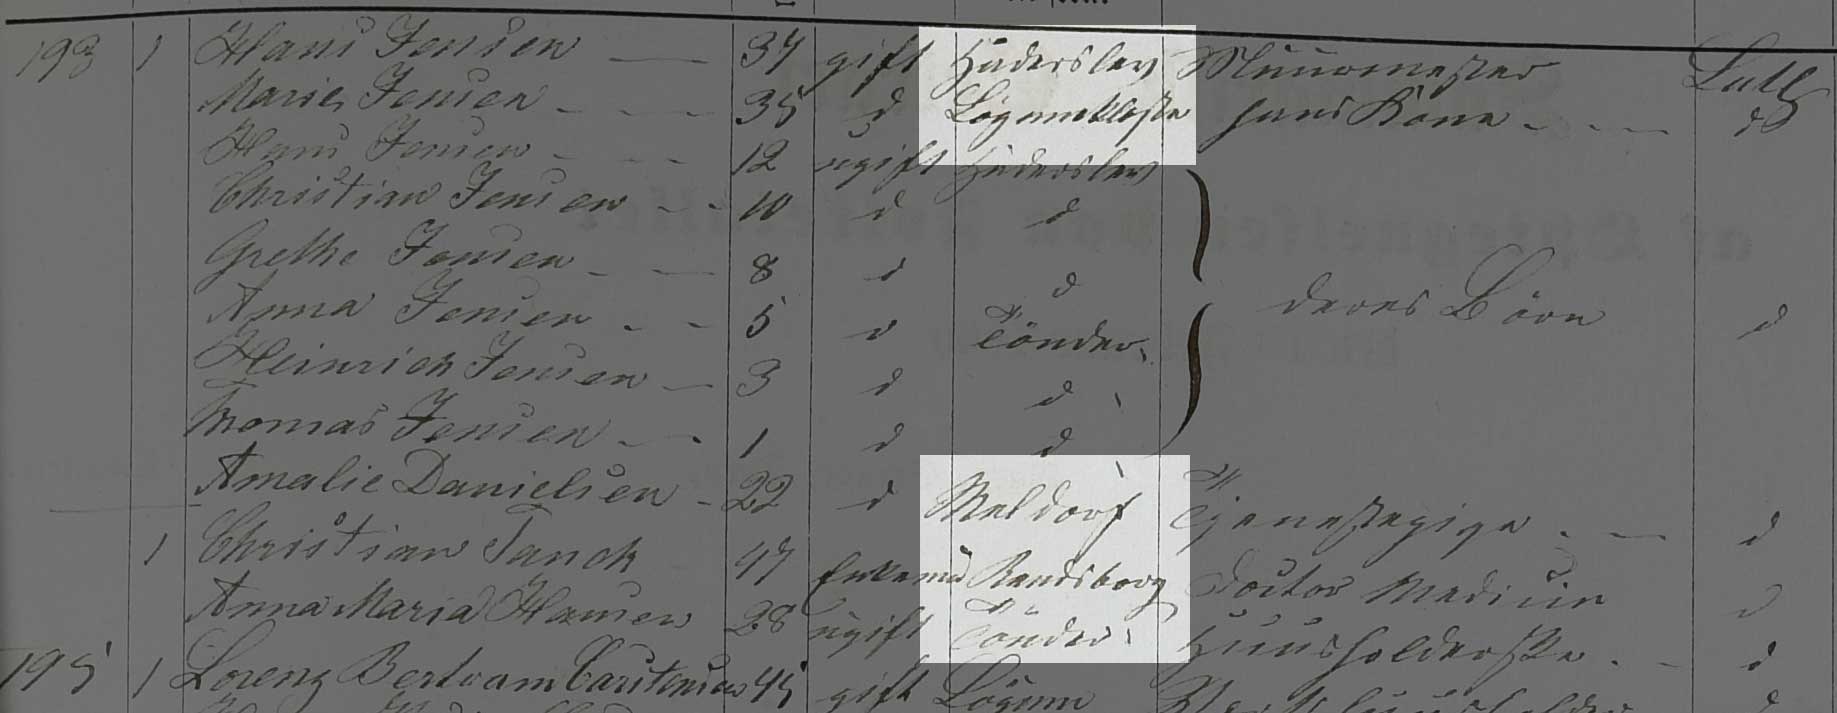 193 1 Hans Jensen 37 gift Haderslev Muurmester Luth
Marie Jensen 35 d Lögumkloster hans Kone d
Hans Jensen 12 ugift Haderslev
Christian Jensen 10 d d
Grethe Jensen 8 d d
Anna Jensen 5 d Tönder deres Börn d
Heinrich Jensen 3 d d
Thomas Jensen 1 d d
Amalie Danielsen 22 d Meldorf Tjenestepige d
1 Christian Tanck 47 Enkemd Rendsborg Doctor Medicin d
Anna Maria Hansen 28 ugift Tönder Huusholderske d
195 1 Lorenz Bertram Carstensen 45 gift Lögum